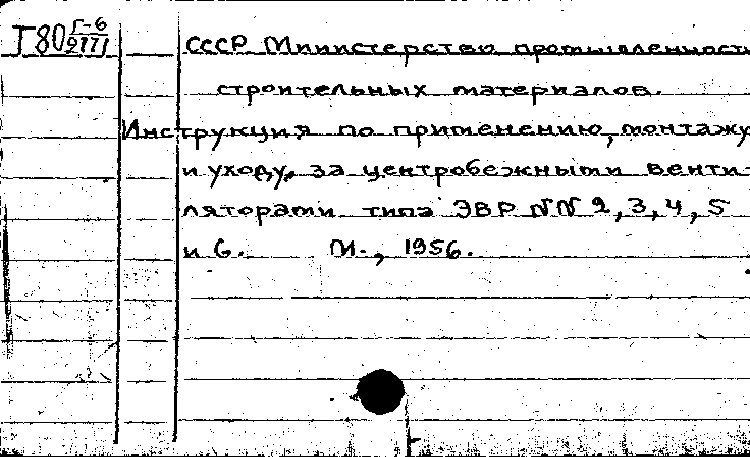 Т80 Г-6/2171
СССР Министерство промышленности
строительных материалов.
Инструкция по применению, монтажу
и уходу, за центробежными венти-
ляторами типа ЭВР NN 2, 3, 4, 5
и 6. М., 1956.